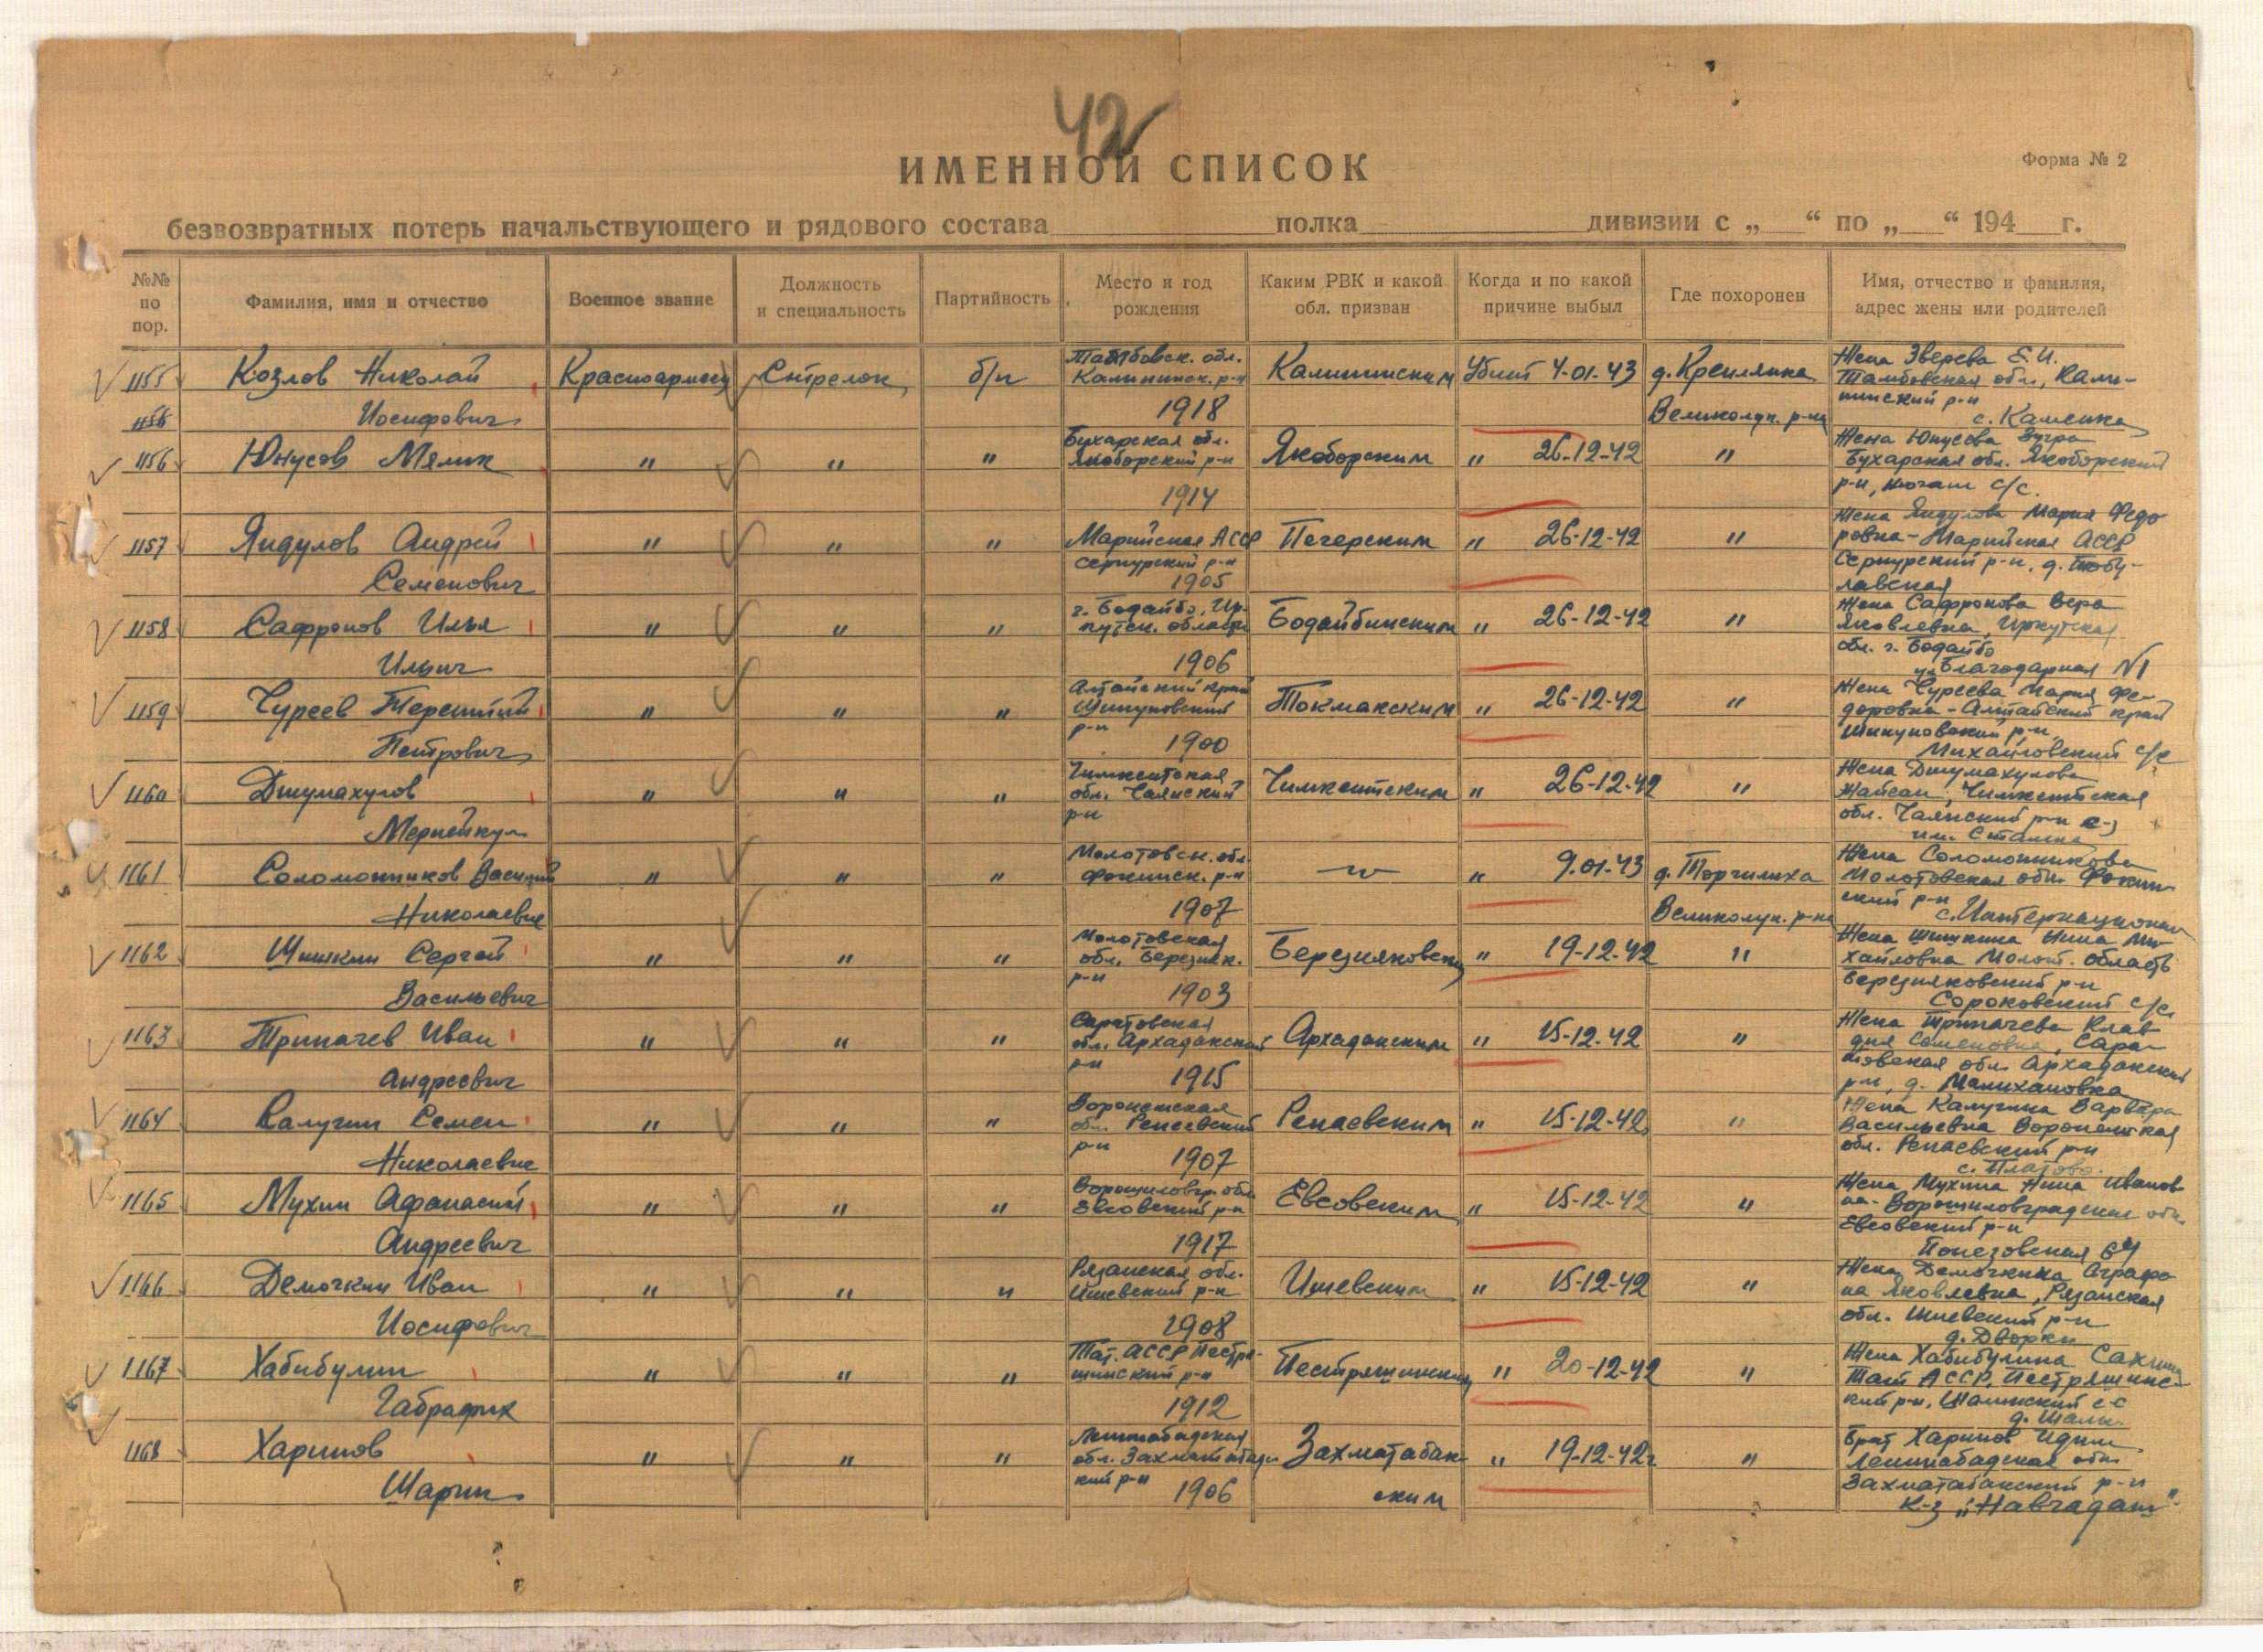 42
ИМЕННОЙ СПИСОК
Форма № 2
безвозвратных потерь начальствующего и рядового состава полка дивизии с „ “ по „ “ 194 г.
№№ по пор.
Фамилия, имя и отчество
Военное звание
Должность и специальность
Партийность
Место и год рождения
Каким РВК и какой обл. призван
Когда и по какой причине выбыл
Где похоронен
Имя, отчество и фамилия, адрес жены или родителей
1155 Козлов Николай Иосифович Красноармеец Стрелок б/п Тамбовск. обл. Калининск. р-н 1918 Калининским Убит 4-01-43 д. Великолук. р-на Жена Зверева Е.И. Тамбовская обл., Калининский р-н с. Каменка
1156 Юнусов Мялик " " " Бухарская обл. Якоборский р-н 1914 Якоборским " 26-12-42 " Жена Юнусова Зугра Бухарская обл. Якоборский р-н, с/с.
1157 Яндулов Андрей Семенович " " " Марийская АССР сернурский р-н 1905 Печерским " 26-12-42 " Жена Яндулова Мария Федоровна - Марийская АССР Сернурский р-н, д.
1158 Сафронов Илья Ильич " " " г. Бодайбо, Иркутск. области 1906 Бодайбинским " 26-12-42 " Жена Сафронова Вера Яковлевна, Иркутская обл. г. Бодайбо ул. Благодарная №1
1159 Чуреев Терентий Петрович " " " Алтайский край Шипуновский р-н 1900 Токмакским " 26-12-42 " Жена Чуреева Мария Федоровна - Алтайский край Шипуновский р-н, Михайловский с/с
1160 Джумахулов " " " Чимкентская обл. Чаянский р-н Чимкентским " 26-12-42 " Жена Джумахулова Жайсан, Чимкентская обл. Чаянский р-н им. Сталина
1161 Соломонников Василий Николаевич " " " Молотовск. обл. Фокинск. р-н 1907 —"— " 9.01.43 д. Торчилиха Великолук. р-на Жена Соломонникова Молотовская обл. Фокинский р-н с. Интернационал
1162 Шишкин Сергей Васильевич " " " Молотовская обл. Березняк. р-н 1903 Березняковским " 19-12-42 " Жена Шишкина Нина Михайловна Молот. область Березняковский р-н Сороковский с/с.
1163 Трипачев Иван Андреевич " " " Саратовская обл. Архадакский р-н 1915 Архадакским " 15-12-42 " Жена Трипачева Клавдия Семеновна, Саратовская обл. Архадакский р-н, д. Малихановка
1164 Калугин Семен Николаевич " " " Воронежская обл. Репаевский р-н 1907 Репаевским " 15-12-42 " Жена Калугина Варвара Васильевна Воронежская обл. Репаевский р-н с. Платово.
1165 Мухин Афанасий Андреевич " " " Ворошиловгр. обл. Евсовский р-н 1917 Евсовским " 15-12-42 " Жена Мухина Нина Ивановна - Ворошиловградская обл. Евсовский р-н 64
1166 Демочкин Иван Иосифович " " " Рязанская обл. Ижевский р-н 1908 Ижевским " 15-12-42 " Жена Демочкина Аграфена Яковлевна, Рязанская обл. Ижевский р-н д. Дворки
1167 Хабибулин Габрафик " " " Тат. АССР Пестрешинский р-н 1912 Пестряшинским " 20-12-42 " Жена Хабибулина Тат АССР, Пестряшинский р-н, Шалинский с-с д. Шали
1168 Харипов Шарип " " " Ленинабадская обл. Захматабадский р-н 1906 Захматабакским " 19-12-42г " Брат Харипов Идим Ленинабадская обл. Захматабакский р-н к-з „Навчадат"